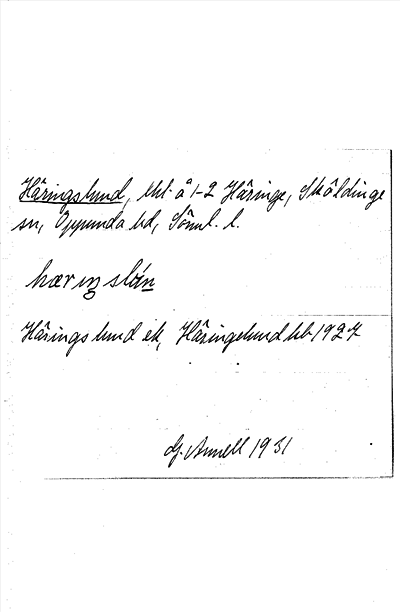 Häringslund, lht. å 1-2 Häringe, Sköldinge
sn, Oppunda hd, Söml. l.
hærıŋslún
Härings lund ek, Häringelund hb 1927
G. Annell 1931